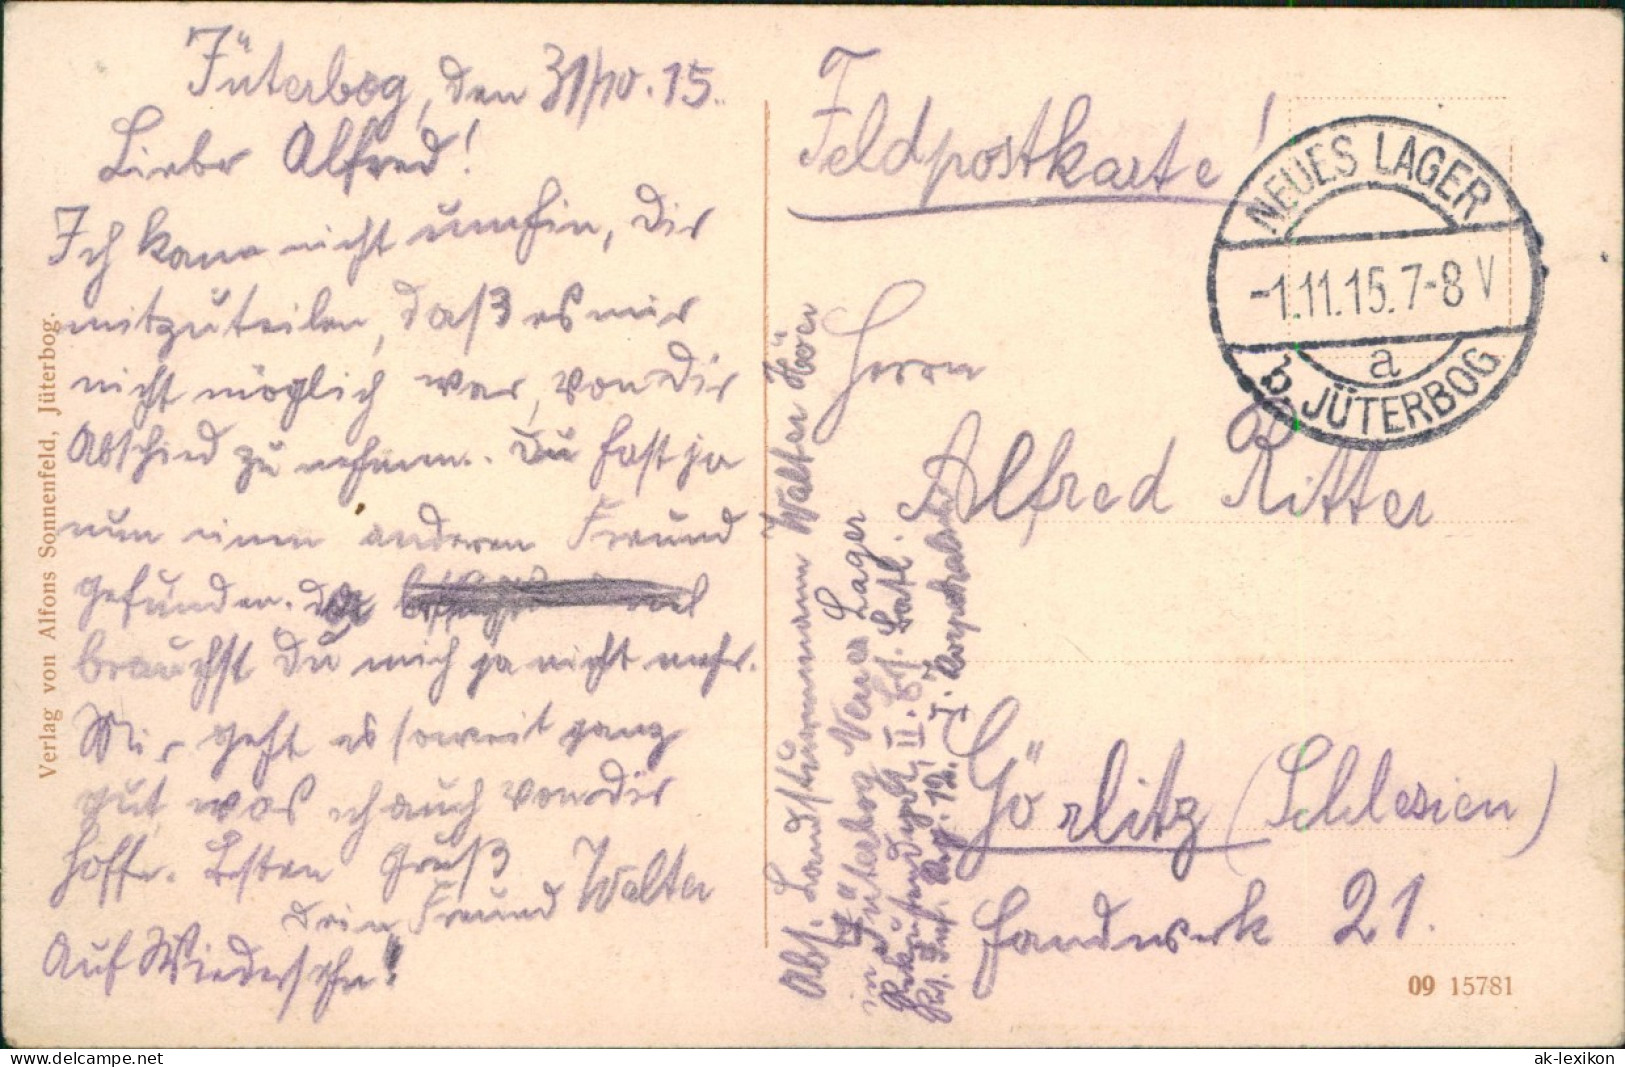 Jüterbog, den 31/10.15.
Lieber Alfred!
Ich kann nicht umhin, Dir
mitzuteilen, daß es mir
nicht möglich war, von Dir
Abschied zu nehmen. Du hast ja
nun einen anderen Freund
gefunden.
brauchst Du mich ja nicht mehr.
Mir geht es soweit ganz
gut, was ich auch von Dir
hoffe. Besten Gruß
Dein Freund Walter
Auf Wiedersehn!
Verlag von Alfons Sonnenfeld, Jüterbog.
Abs. Landsturmmann Walter
in Jüterbog Neues Lager
Rekrutendepot, II. Ers. Batl.
Res. Inf. Reg. 12.
Feldpostkarte!
NEUES LAGER
-1.11.15.7-8 V
a
b. JÜTERBOG
Herrn
Alfred Ritter
Görlitz (Schlesien)
Handwerk 21.
09 15781
ak-ansichtskarten.de
ak-lexikon